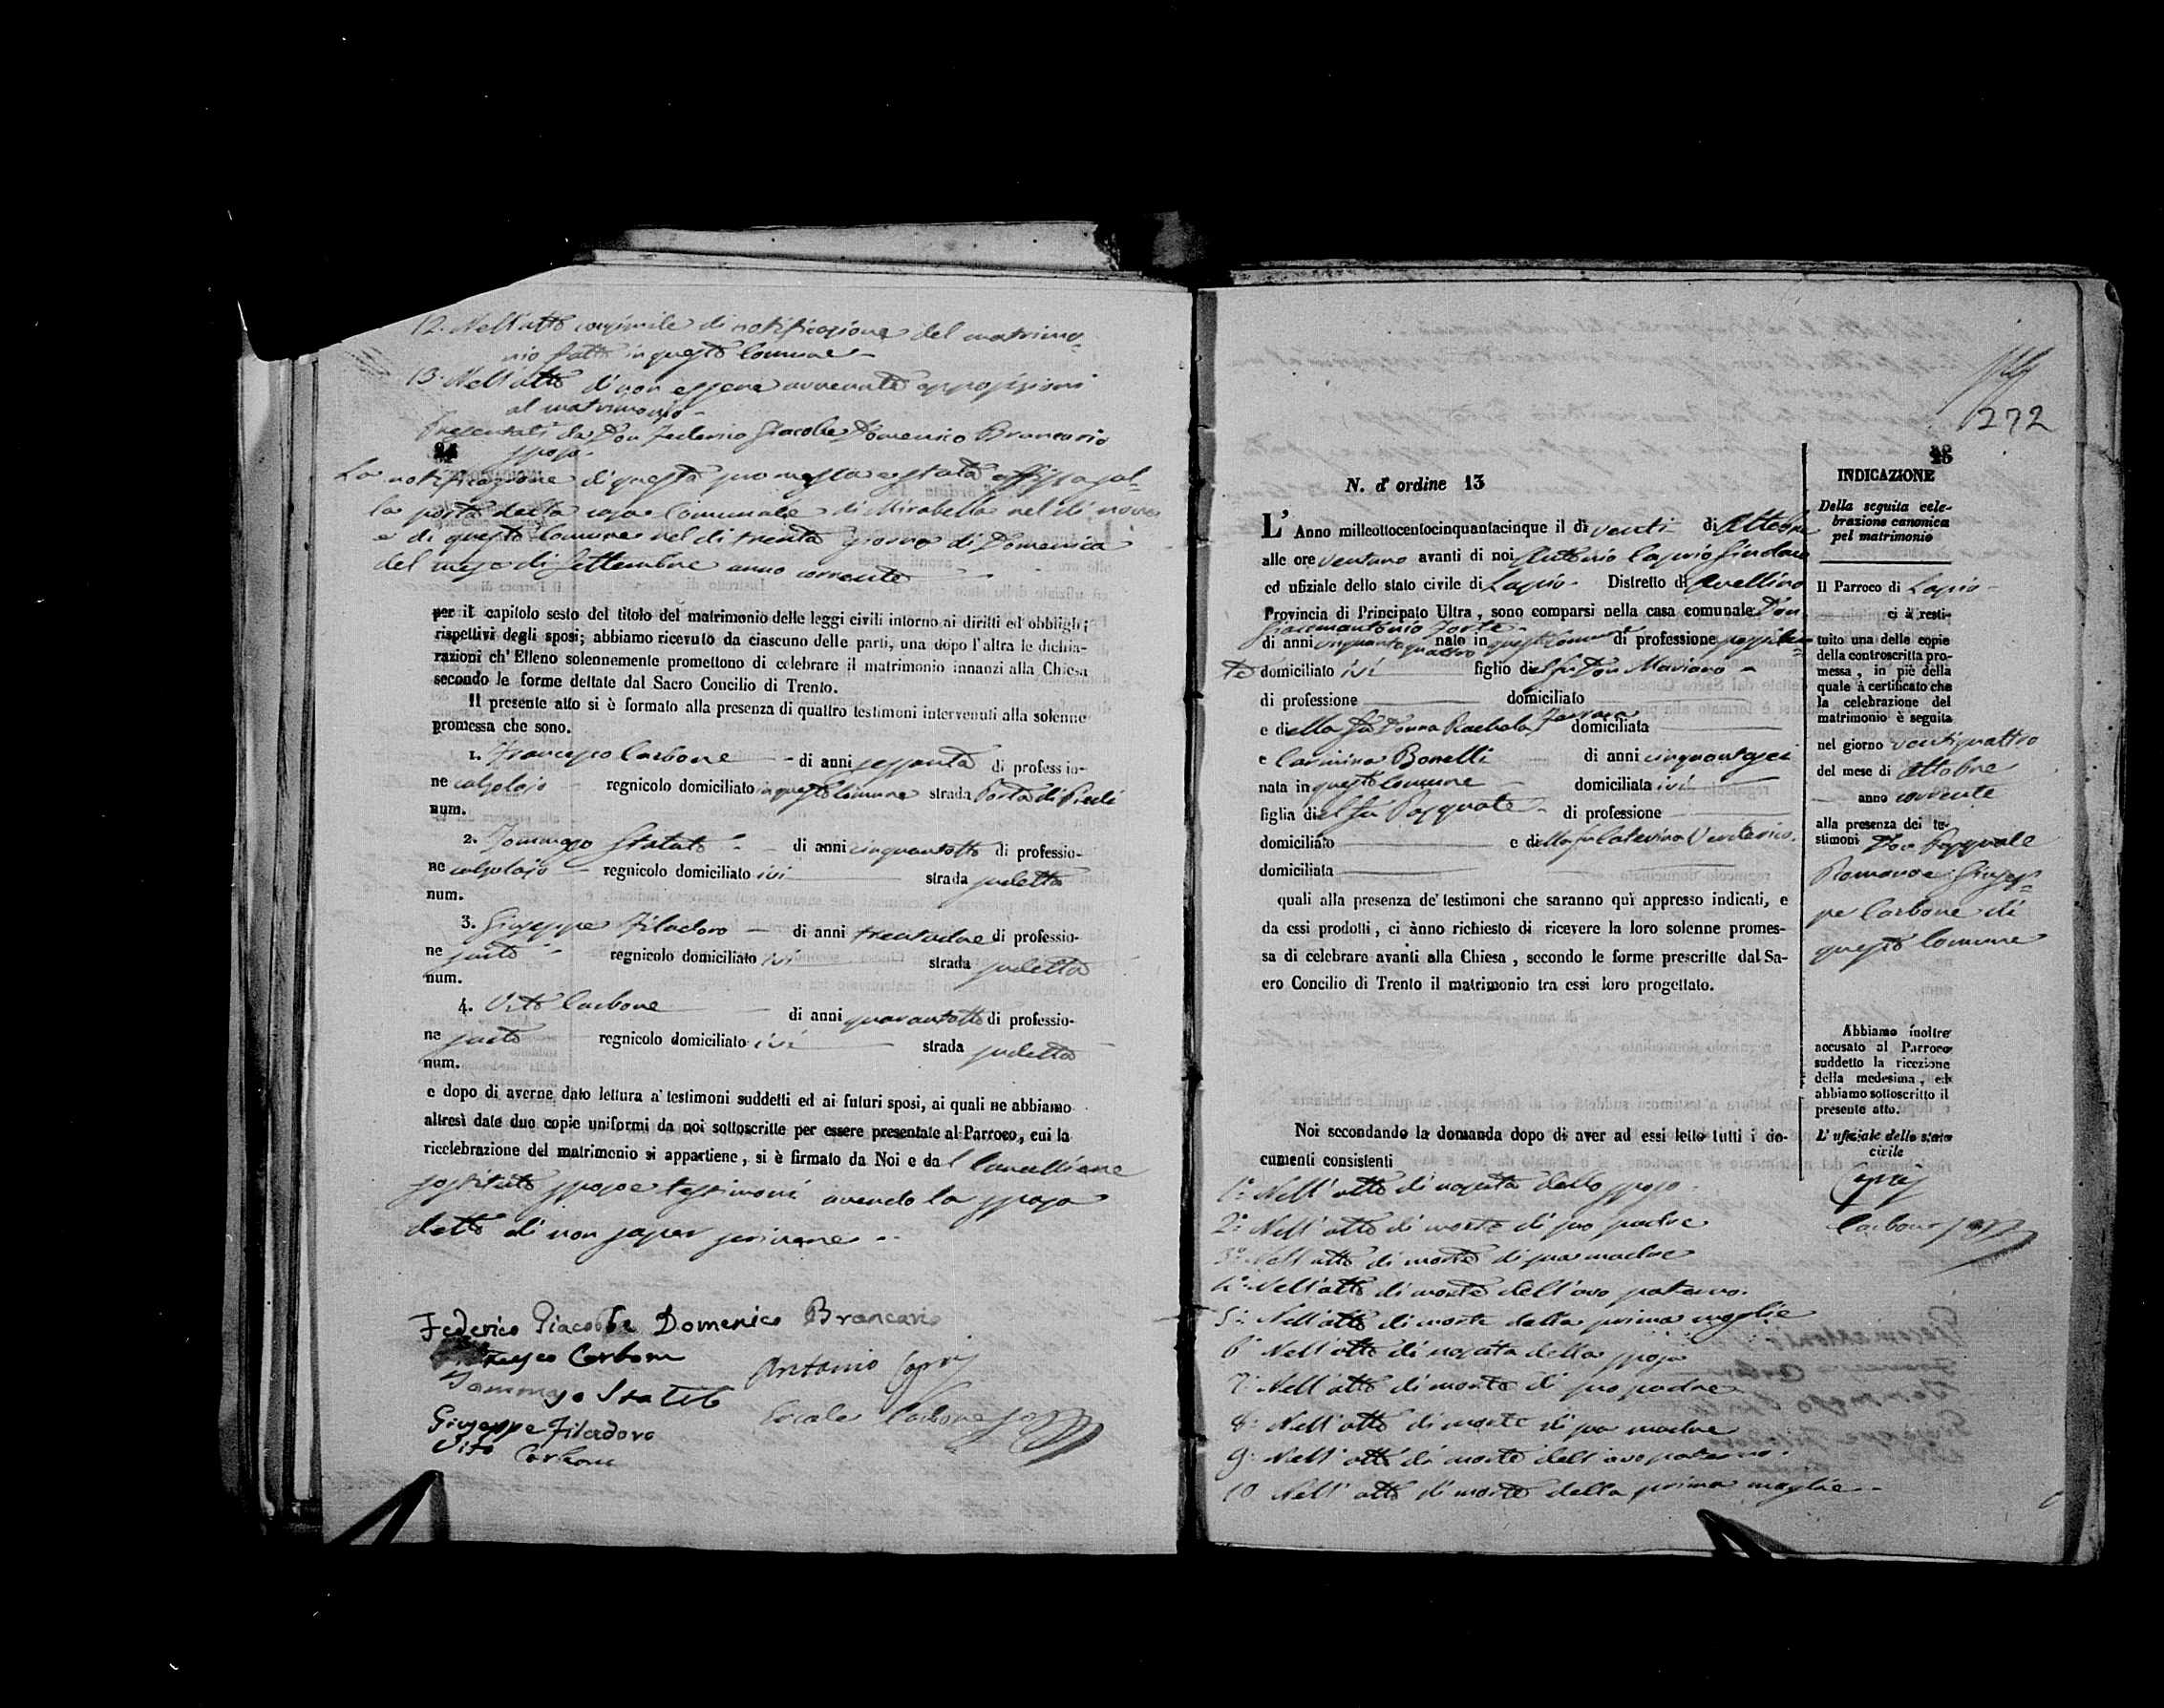 12. Nell'atto consimile di notificazione del matrimo=
nio fatto in questo Comune
13. Nell'atto di non essere avvenute opposizioni
al matrimonio
Presentati da Don Federico Giacobbe Domenico Brancario
sposo.
24
La notificazione di questa promessa è stata affissa sul=
la porta della casa Comunale di Mirabella nel dì nove
e di questo Comune nel dì trenta giorno di Domenica
del mese di Settembre anno corrente
per il capitolo sesto del titolo del matrimonio delle leggi civili intorno ai diritti ed obblighi
rispettivi degli sposi; abbiamo ricevuto da ciascuno delle parti, una dopo l'altra le dichia-
razioni ch'Elleno solennemente promettono di celebrare il matrimonio innanzi alla Chiesa
secondo le forme dettate dal Sacro Concilio di Trento.
Il presente atto si è formato alla presenza di quattro testimoni intervenuti alla solenne
promessa che sono.
1. Francesco Carbone di anni sessanta di professio-
ne calzolajo regnicolo domiciliato in questo Comune strada Porta di Piedi
num.
2. Tommaso Statuto di anni cinquantotto di professio-
ne calzolajo regnicolo domiciliato ivi strada sudetta
num.
3. Giuseppe Filadoro di anni trentadue di professio-
ne sarto regnicolo domiciliato ivi strada sudetta
num.
4. Vito Carbone di anni quarantotto di professio-
ne sarto regnicolo domiciliato ivi strada sudetta
num.
e dopo di averne dato lettura a' testimoni suddetti ed ai futuri sposi, ai quali ne abbiamo
altresì date due copie uniformi da noi sottoscritte per essere presentate al Parroco, cui la
ricelebrazione del matrimonio si appartiene, si è firmato da Noi e dal Cancelliere
sostituto sposo e testimoni avendo la sposa
detto di non saper scrivere
Federico Giacobbe Domenico Brancario
Francesco Carbone
Antonio Caprio
Tommaso Statuto
Giuseppe Filadoro
Carbone
Vito Carbone
272
25
N. d' ordine 13
L' Anno milleottocentocinquantacinque il dì venti di Ottobre
alle ore ventuno avanti di noi Antonio Caprio Sindaco
ed ufiziale dello stato civile di Lapio Distretto di Avellino
Provincia di Principato Ultra, sono comparsi nella casa comunale Don
Giacomantonio Forte
di anni cinquantaquattro nato in questo Comune di professione possiden=
te domiciliato ivi figlio del fu Don Mariano
di professione domiciliato
e della fu Donna Rachela domiciliata
e Carmina Bonelli di anni cinquantasei
nata in questo Comune domiciliata ivi
figlia del fu Pasquale di professione
domiciliato e della fu Caterina Verderico.
domiciliata
quali alla presenza de' testimoni che saranno quì appresso indicati, e
da essi prodotti, ci ànno richiesto di ricevere la loro solenne promes-
sa di celebrare avanti alla Chiesa, secondo le forme prescritte dal Sa-
cro Concilio di Trento il matrimonio tra essi loro progettato.
Noi secondando la domanda dopo di aver ad essi letto tutti i do-
cumenti consistenti
1.° Nell'atto di nascita dello sposo
2.° Nell'atto di morte di suo padre
3.° Nell'atto di morte di sua madre
4.° Nell'atto di morte dell'avo paterno.
5.° Nell'atto di morte della prima moglie
6.° Nell'atto di nascita della sposa
7.° Nell'atto di morte di suo padre
8.° Nell'atto di morte di sua madre
9.° Nell'atto di morte dell'avo paterno.
10 Nell'atto di morte della prima moglie
INDICAZIONE
Della seguita cele-
brazione canonica
pel matrimonio
Il Parroco di Lapio
ci à resti-
tuito una delle copie
della controscritta pro-
messa, in piè della
quale à certificato che
la celebrazione del
matrimonio è seguita
nel giorno ventiquattro
del mese di Ottobre
anno corrente
alla presenza dei te-
stimoni Don Pasquale
Romano e Giusep=
pe Carbone di
questo Comune
Abbiamo inoltre
accusato al Parroco
suddetto la ricezione
della medesima, ed
abbiamo sottoscritto il
presente atto.
L' ufiziale dello stato
civile
Caprio
Carbone